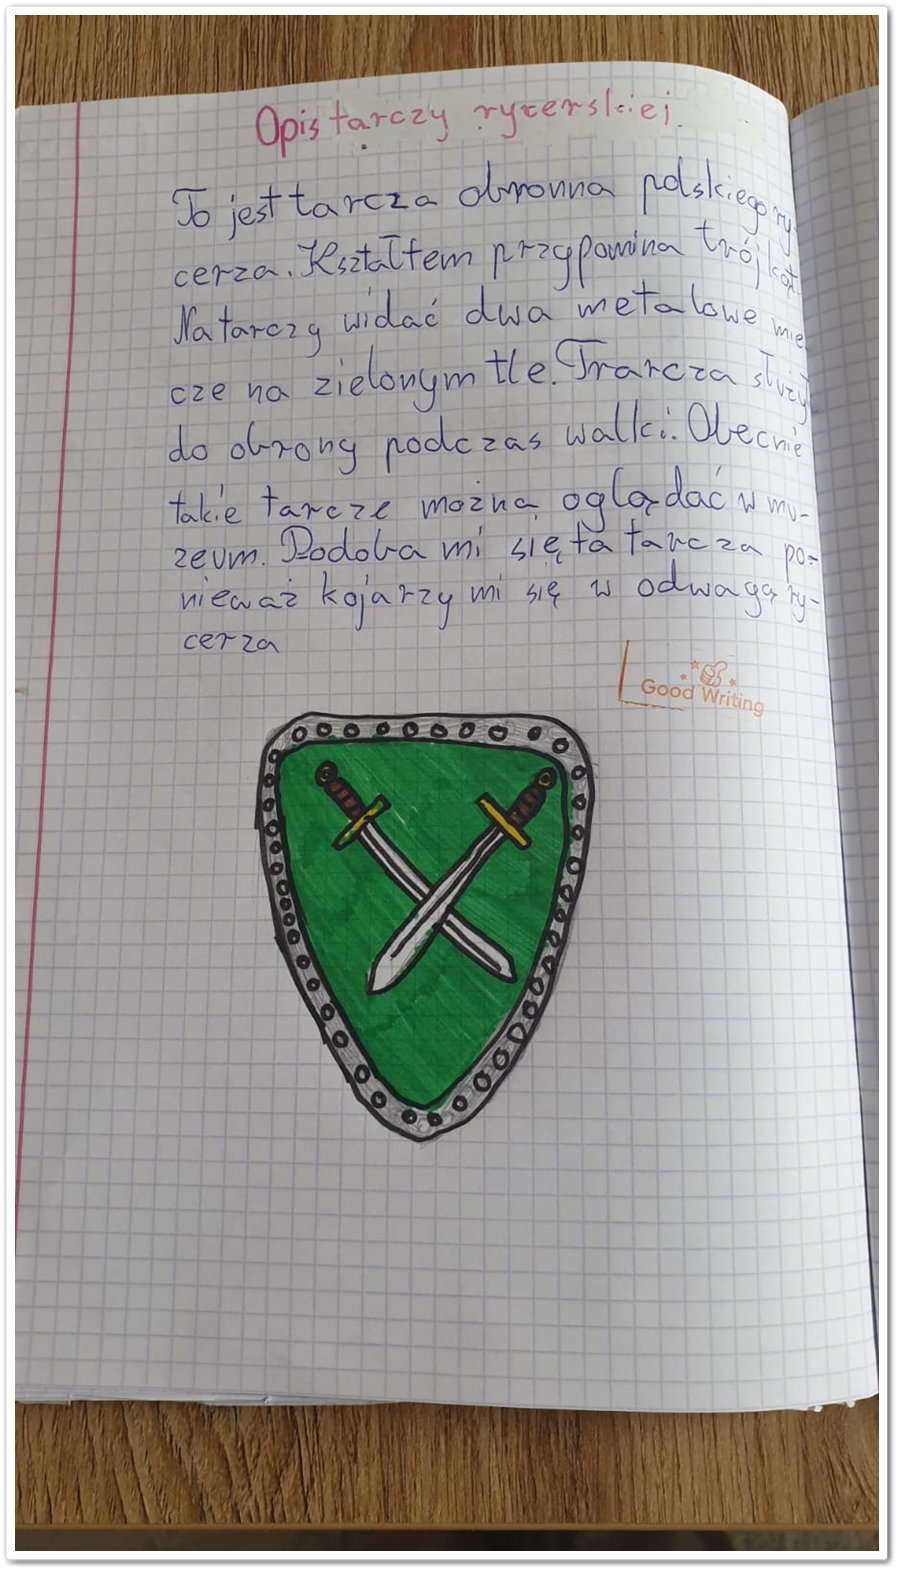 Opis tarczy rycerskiej.
To jest tarcza obronna polskiego ry
cerza. Kształtem przypomina trójkąt.
Na tarczy widać dwa metalowe mie
cze na zielonym tle. Trarcza służy
do obrony podczas walki. Obecnie
takie tarcze można oglądać w mu-
zeum. Podoba mi się ta tarcza po-
nieważ kojarzy mi się w odwagą ry-
cerza
Good Writing